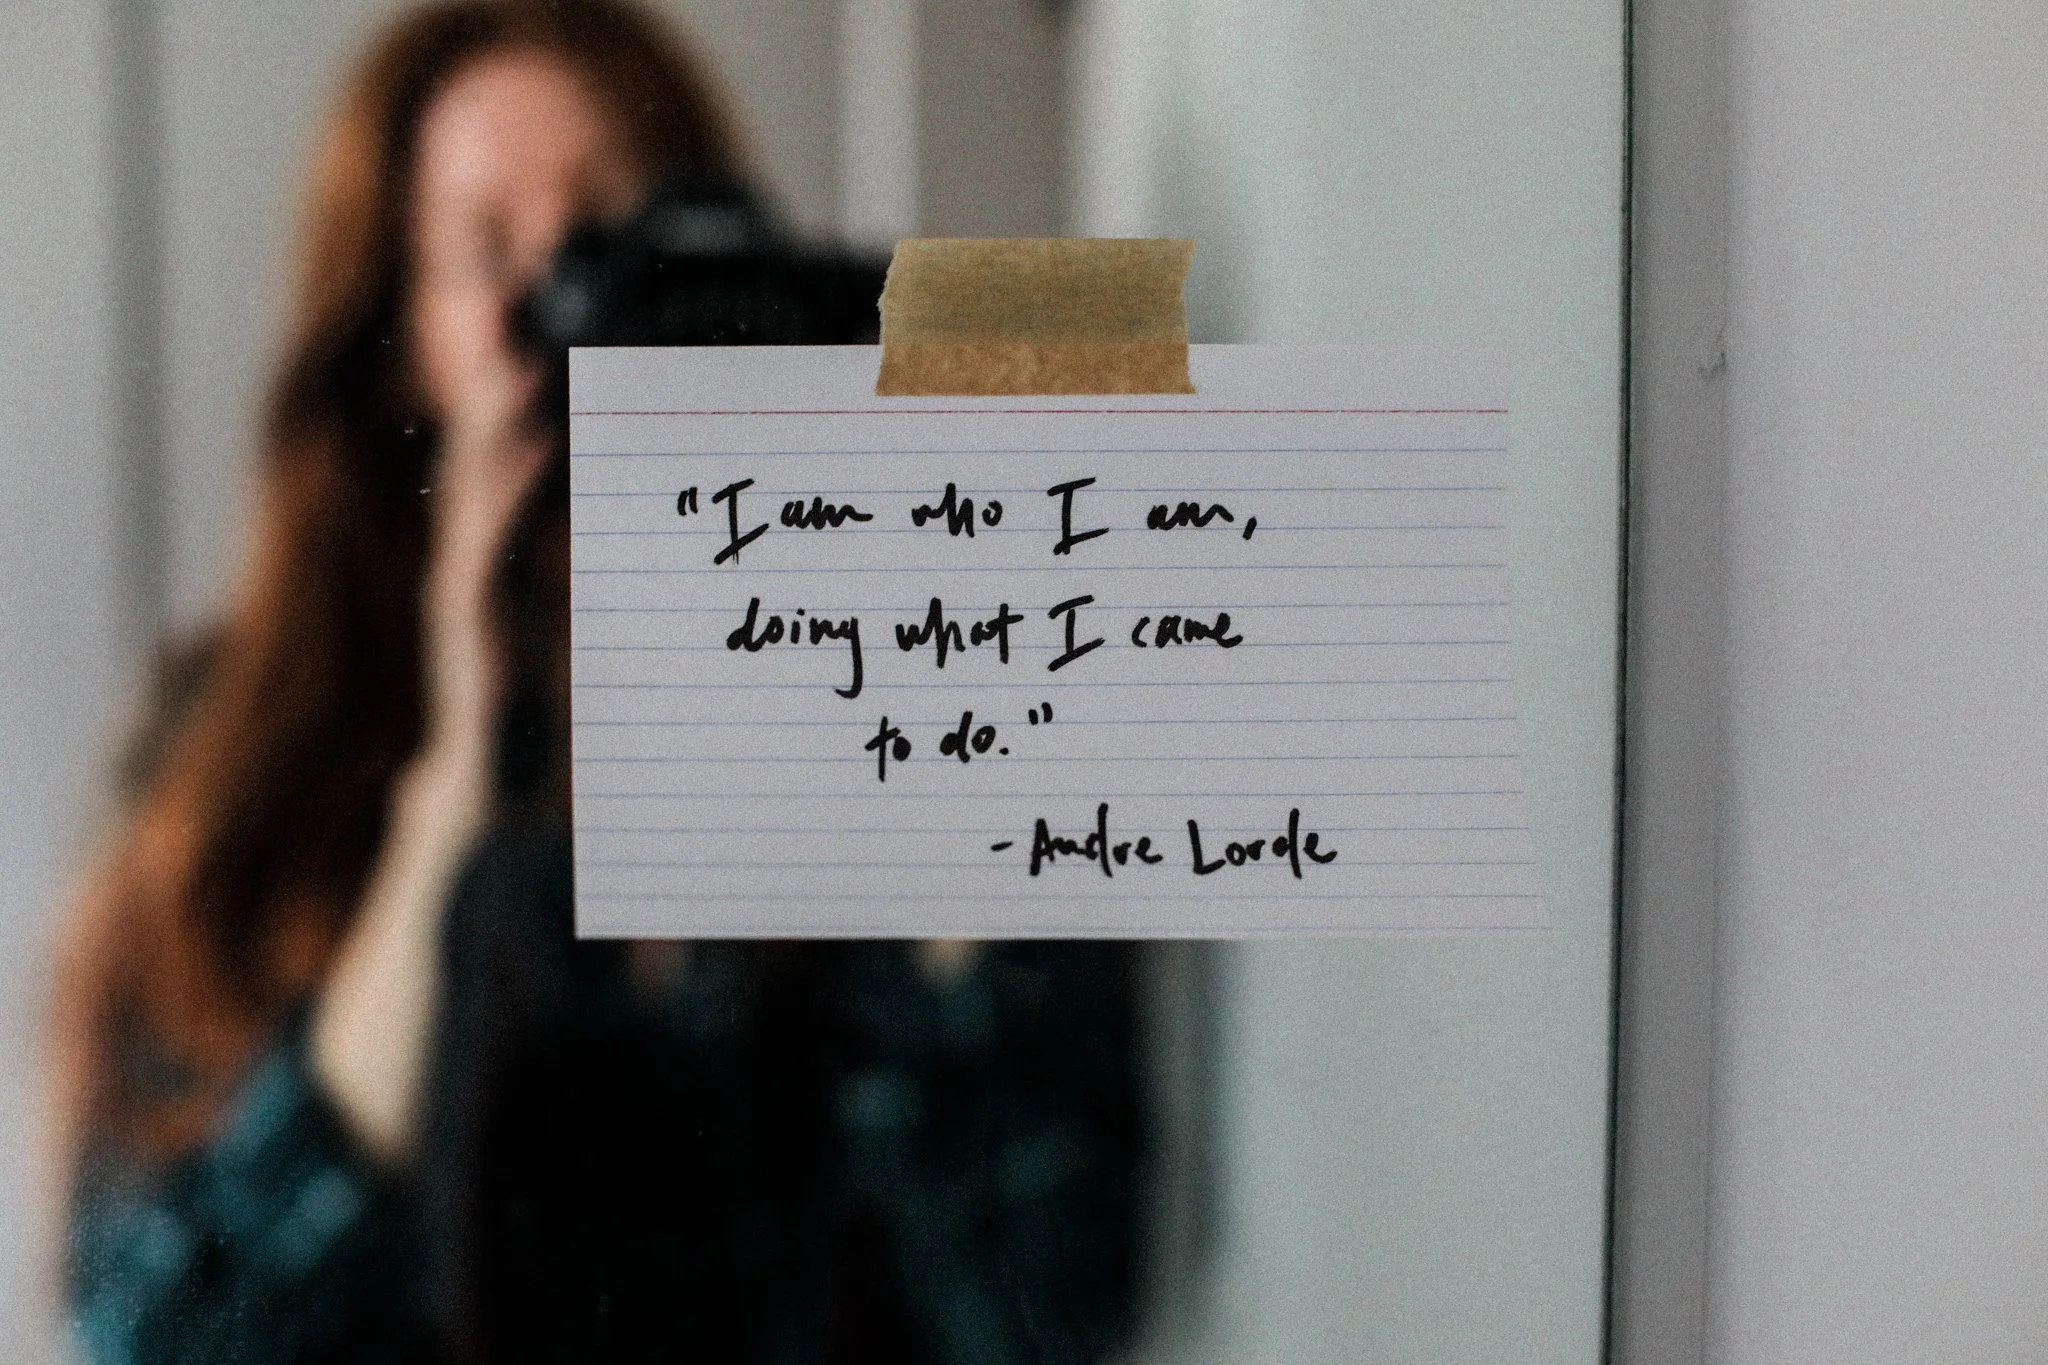 "I am who I am,
doing what I came
to do."
- Andre Lorde